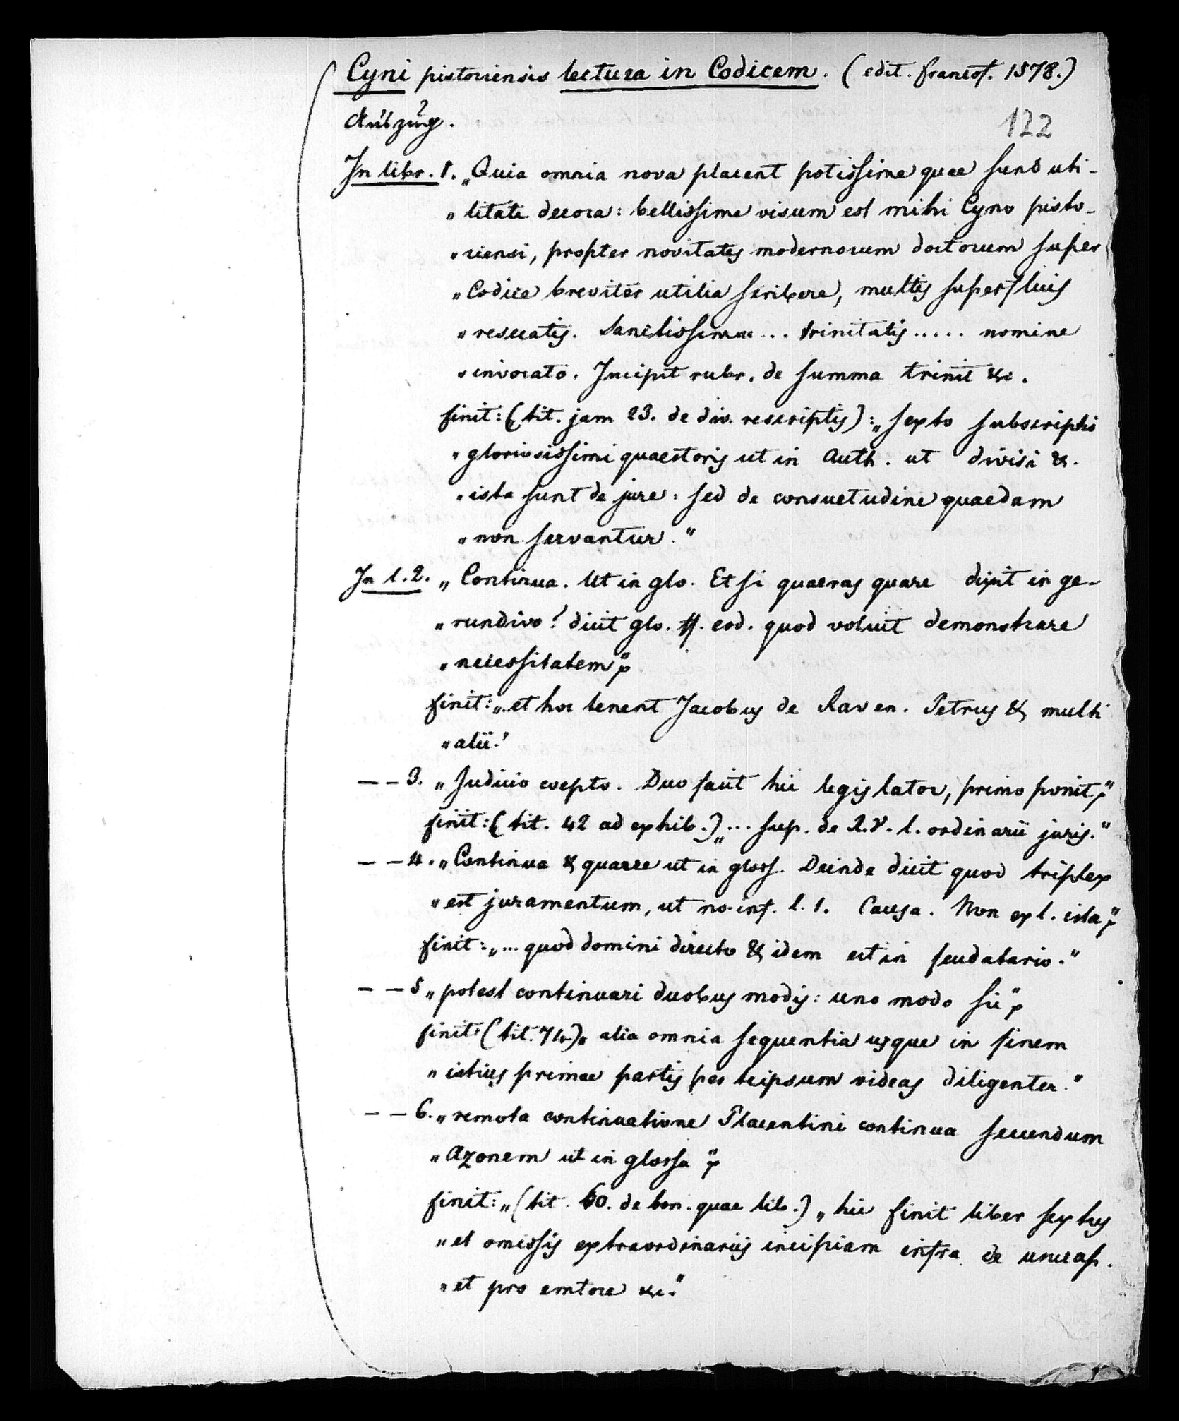 Cyni pistoriensis lectura in Codicem. (edit. francof. 1578.)
Auszug.
122
In libr. 1. „Quia omnia nova placent potissime quae sunt uti-
„litate decora: bellissime visum est mihi Cyno pisto-
„riensi, propter novitates modernorum doctorum super
„Codice breviter utilia scribere, multis superfluis
„resecatis. Sanctissimae ... trinitatis ..... nomine
„invocato. Incipit rubr. de summa trinit &c.
finit: (tit. jam 23. de div. rescriptis): „sexto subscriptio
„gloriosissimi quaestoris ut in Auth. ut divisi &.
„ista sunt de jure: sed de consuetudine quaedam
„non servantur."
In l. 2. „Continua. Ut in glo. Et si quaeras quare dixit in ge-
„rundivo? dicit glo. ff. eod. quod voluit demonstrare
„necessitatem"
finit: „et hoc tenent Jacobus de Raven. Petrus & multi
„alii."
— — 3. „Judicio coepto. Duo facit hic legislator, primo ponit"
finit: (tit. 42 ad exhib.) „... sup. de R.V. l. ordinarii juris."
— — 4. „Continua & quaere ut in gloss. Deinde dicit quod triplex
„est juramentum, ut no. inf. l. 1. Causa. Non ex l. ista"
finit: „... quod domini directo & idem est in feudatario."
— — 5 „potest continuari duobus modis: uno modo sic"
finit (tit. 74) „alia omnia sequentia usque in finem
„istius primae partis per teipsum videas diligenter."
— — 6. „remota continuatione Placentini continua secundum
„Azonem ut in glossa"
finit: „(tit. 60. de bon. quae lib.) „hic finit liber sextus
„et omissis extraordinariis incipiam infra de usucap.
„et pro emtore &c."